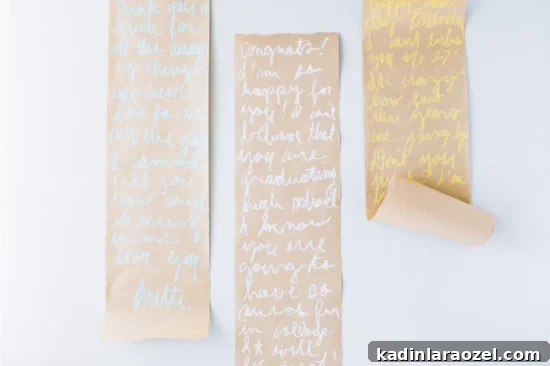 Thank you so
much for
all the amazi
ng things
you have
done for me
over the years
I cannot
tell you
how much
it means
to me. I
love you
Britt
Congrats!
I'm so
happy for
you! I can't
believe that
you are
graduating
high school
I know
you are
going to
have so
much fun
in college.
It will
be great!
Happy
I can't believe
you are 27!
It's crazy
how fast
the years
are going by
Don't you
I'm
kadinlaraozel.com